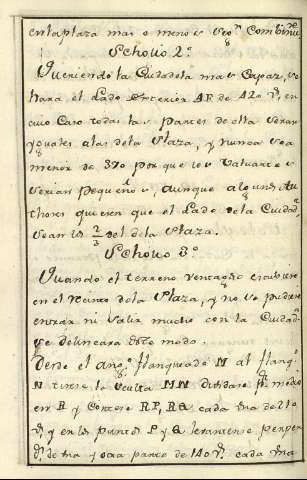 en la plaza mas o menos seg.n combiniere
Scholio 2.o
Queriendo la Ciudadela mas Capaz, se
hara el Lado exterior AF de 420 V.s en
cuio Caso todas las partes de ella seran
yguales alas dela Plaza, y nunca sea
menor de 370 por que los Valuartes
serian Pequeños, aunque algunos Au
thores quieren que el Lado de la Ciudad.a
sean los 2/3 del dela Plaza.
Scholio 3.o
Quando el terreno ventajoso estubiere
en el Recinto dela Plaza, y no se pudiere
entrar ni salir mucho con la Ciudad.a
se delineara este modo.
Desde el ang.o flanqueado M al flanq.o
N tirese la oculta MN dividase p.r medio
en R y Cortese RP, RQ cada una de 210
V.s y en los puntos P y Q levantense perpen
de una y otra parte de 140 V.s cada una